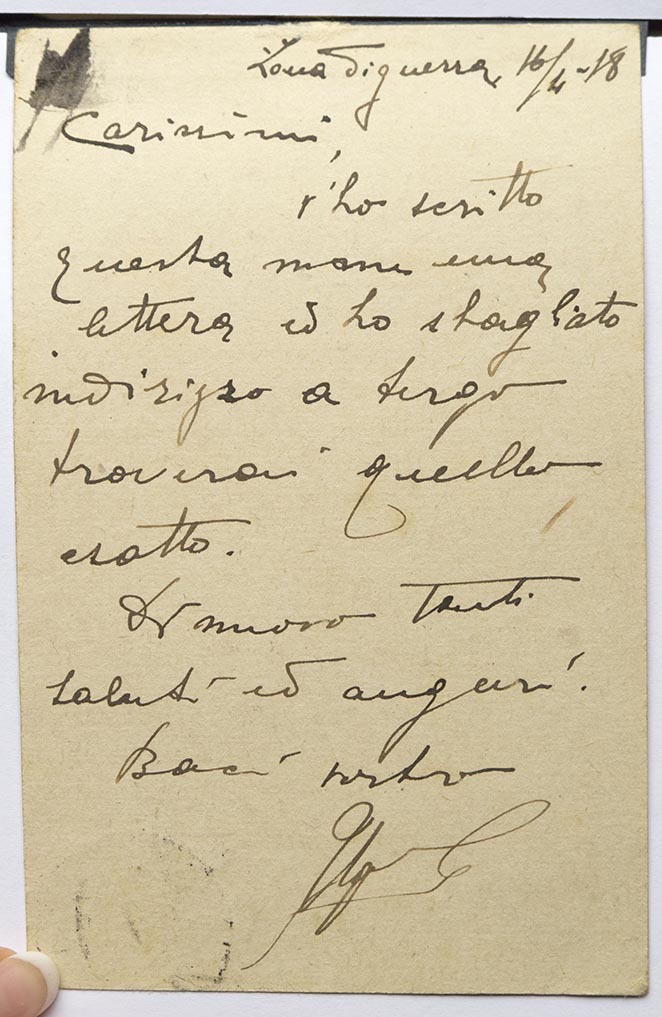 Zona di guerra, 16/4-18
Carissimi,
v'ho scritto
questa mane una
lettera ed ho sbagliato
indirizzo a tergo
troverai quello
esatto.
Di nuovo tanti
saluti ed auguri.
Baci vostro